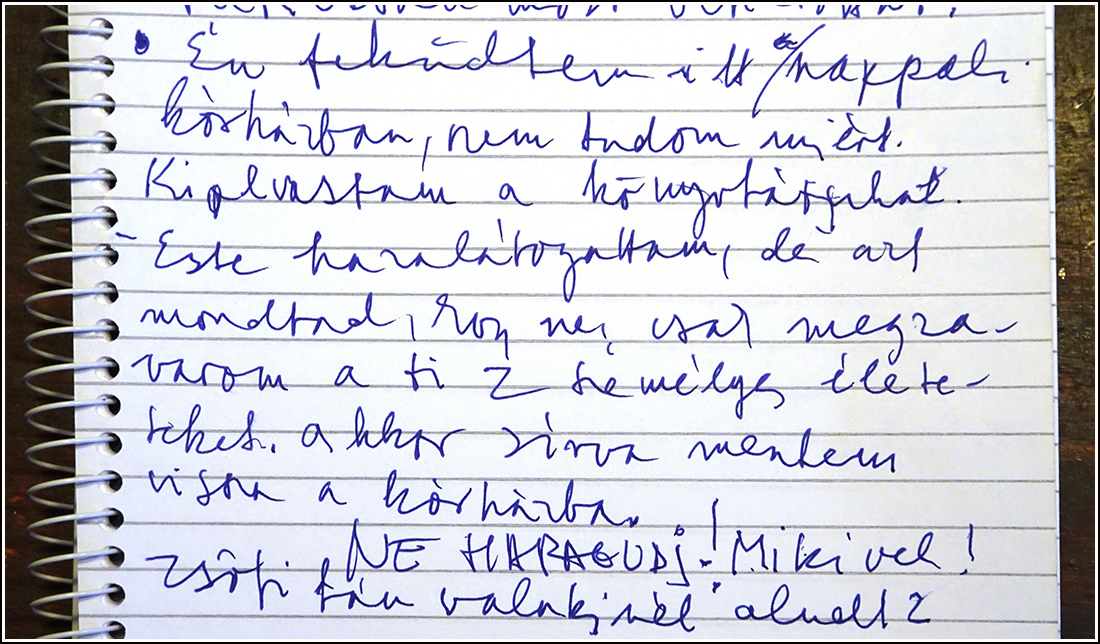 • Én feküdtem itt nappali
kórházban, nem tudom miért.
Kiolvastam a könyvtárukat.
- Este hazalátogattam, de azt
mondtad, hogy ne, csak megza-
varom a ti 2 személyes élete-
teket. akkor sírva mentem
vissza a kórházba.
NE HARAGUDj! Mikivel!
Zsófi tán valakinél aludt?